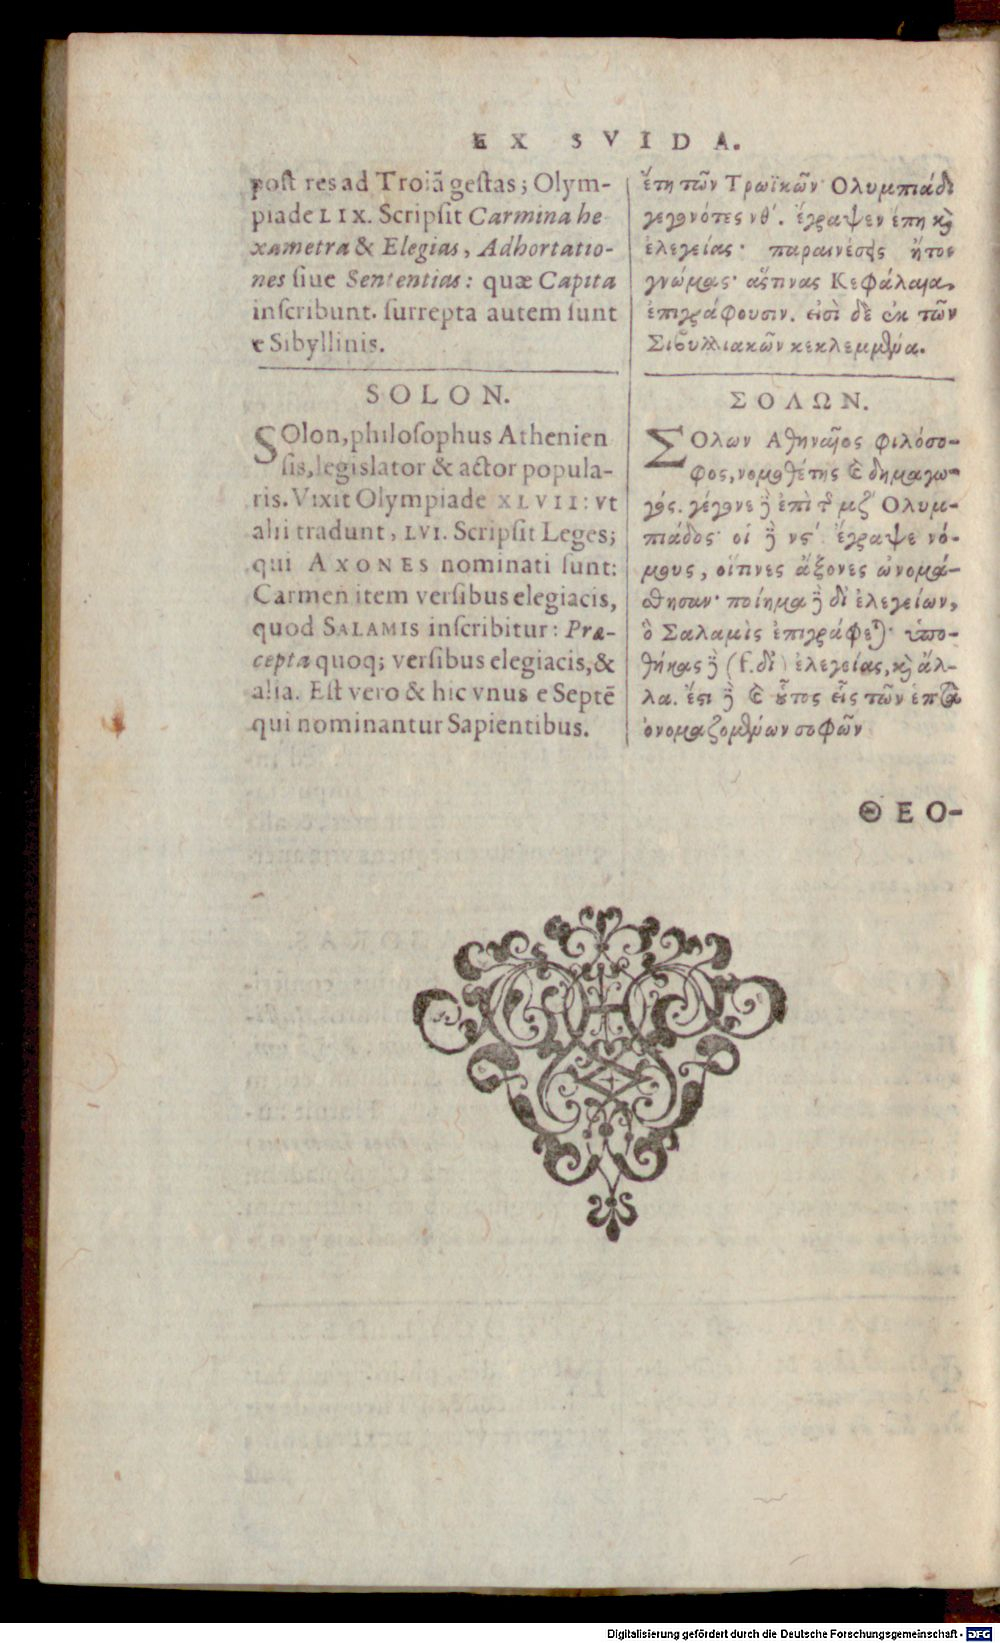 EX SVIDA.
post res ad Troiã gestas; Olym-
piade LIX. Scripsit Carmina he
xametra & Elegias, Adhortatio-
nes siue Sententias: quæ Capita
inscribunt. surrepta autem sunt
e Sibyllinis.
SOLON.
SOlon, philosophus Athenien
sis, legislator & actor popula-
ris. Vixit Olympiade XLVII: vt
alii tradunt, LVI. Scripsit Leges;
qui AXONES nominati sunt:
Carmen item versibus elegiacis,
quod SALAMIS inscribitur: Præ-
cepta quoq; versibus elegiacis, &
alia. Est vero & hic vnus e Septẽ
qui nominantur Sapientibus.
ἔτη τῶν Τρωϊκῶν Ολυμπιάδι
γεγονότες νθʹ. ἔγραψεν ἔπη καὶ
ἐλεγείας· παραινέσεις ἤτοι
γνώμας· ἅςτινας Κεφάλαια,
ἐπιγράφουσιν. εἰσὶ δὲ ἐκ τῶν
Σιβυλλιακῶν κεκλεμμένα.
ΣΟΛΩΝ.
ΣΟλων Αθηναῖος φιλόσο-
φος, νομοθέτης καὶ δημαγω-
γός. γέγονε δὲ ἐπὶ τῆς μζʹ Ολυμ-
πιάδος· οἱ δὲ νςʹ. ἔγραψε νό-
μους, οἵτινες ἄξονες ὠνομά-
σθησαν· ποίημα δὲ δι ἐλεγείων,
ὃ Σαλαμὶς ἐπιγράφεται· ὑπο-
θήκας δὲ (f. δι) ἐλεγείας, καὶ ἄλ-
λα. ἔστι δὲ καὶ οὗτος εἷς τῶν ἑπτὰ
ὀνομαζομένων σοφῶν
ΘΕΟ-
Digitalisierung gefördert durch die Deutsche Forschungsgemeinschaft - DFG